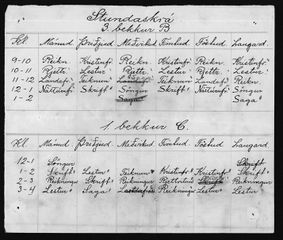 Stundaskrá
3. bekkur B
Kl. Mánud Þriðjud Miðvikud Fimtud Föstud Laugard.
9-10 Reikn Kristinfr. Reikn Kristinfr.
10-11 Rjettr. Lestur Rjettr. Lestur Rjettr. Lestur
11-12 Landafr. Landafr. Reikn.
12-1 Náttúrufr. Skrift Söngur Náttúrufr. Skrift Söngur
1-2 Saga Saga
1. bekkur C.
Kl. Mánud Þriðjud Miðvikud Fimtud Föstud Laugard
12-1 Söngur Skrift
1-2 Skrift Lestur Kristinfr. Kristinfr. Lestur
2-3 Reikningur Skrift Reikningur Rjettritun Skrift Reikningur
3-4 Lestur Saga Reikningur Lestur Lestur